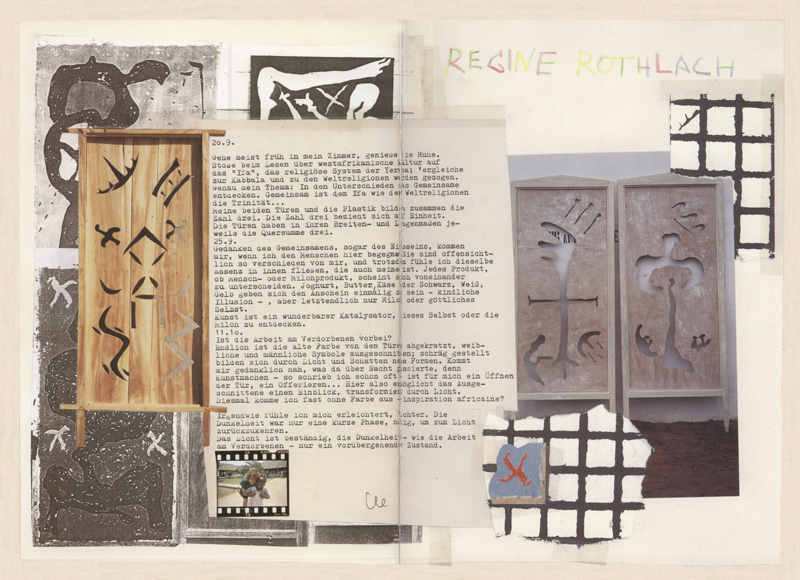 REGINE ROTHLACH
20.9.
Gehe meist früh in mein Zimmer, genieße die Ruhe.
Stoße beim Lesen über westafrikanische Kultur auf
das "Ifa", das religiöse System der Vergleiche
zur Kabbala und zu den Weltreligionen werden gezogen.
Genau mein Thema: In den Unterschieden das Gemeinsame
entdecken. Gemeinsam ist dem Ifa wie den Weltreligionen
die Trinität...
Meine beiden Türen und die Plastik bilden zusammen die
Zahl drei. Die Zahl drei bezieht sich auf Einheit.
Die Türen haben in ihren Breiten- und Längenmaßen je-
weils die Quersumme drei.
25.9.
Gedanken des Gemeinsamens, sogar des Einsseins, kommen
mir, wenn ich den Menschen hier begegne. Sie sind offensicht-
lich so verschieden von mir, und trotzdem fühle ich dieselbe
Essens in ihnen fließen, die auch meine ist. Jedes Produkt,
ob Mensch- oder Milchprodukt, scheint sich voneinander
zu unterscheiden. Joghurt, Butter, Käse oder Schwarz, Weiß,
Gelb geben sich den Anschein einmalig zu sein - kindliche
Illusion - , aber letztendlich nur Milch oder göttliches
Selbst.
Kunst ist ein wunderbarer Katalysator, dieses Selbst oder die
Milch zu entdecken.
11.10.
Ist die Arbeit am Verdorbenen vorbei?
Endlich ist die alte Farbe von den Türen abgekratzt, weib-
liche und männliche Symbole ausgeschnitten; schräg gestellt
bilden sich durch Licht und Schatten neue Formen. Kommt
mir gedanklich nah, was da über Nacht passierte, denn
Kunstmachen - so schrieb ich schon oft - ist für mich ein Öffnen
der Tür, ein Offerieren... Hier also ermöglicht das Ausge-
schnittene einen Einblick, transformiert durch Licht.
Diesmal komme ich fast ohne Farbe aus - inspiration africaine?
Irgendwie fühle ich mich erleichtert, leichter. Die
Dunkelheit war nur eine kurze Phase, nötig, um zum Licht
zurückzukehren.
Das Licht ist beständig, die Dunkelheit - wie die Arbeit
am Verdorbenen - nur ein vorübergehender Zustand.